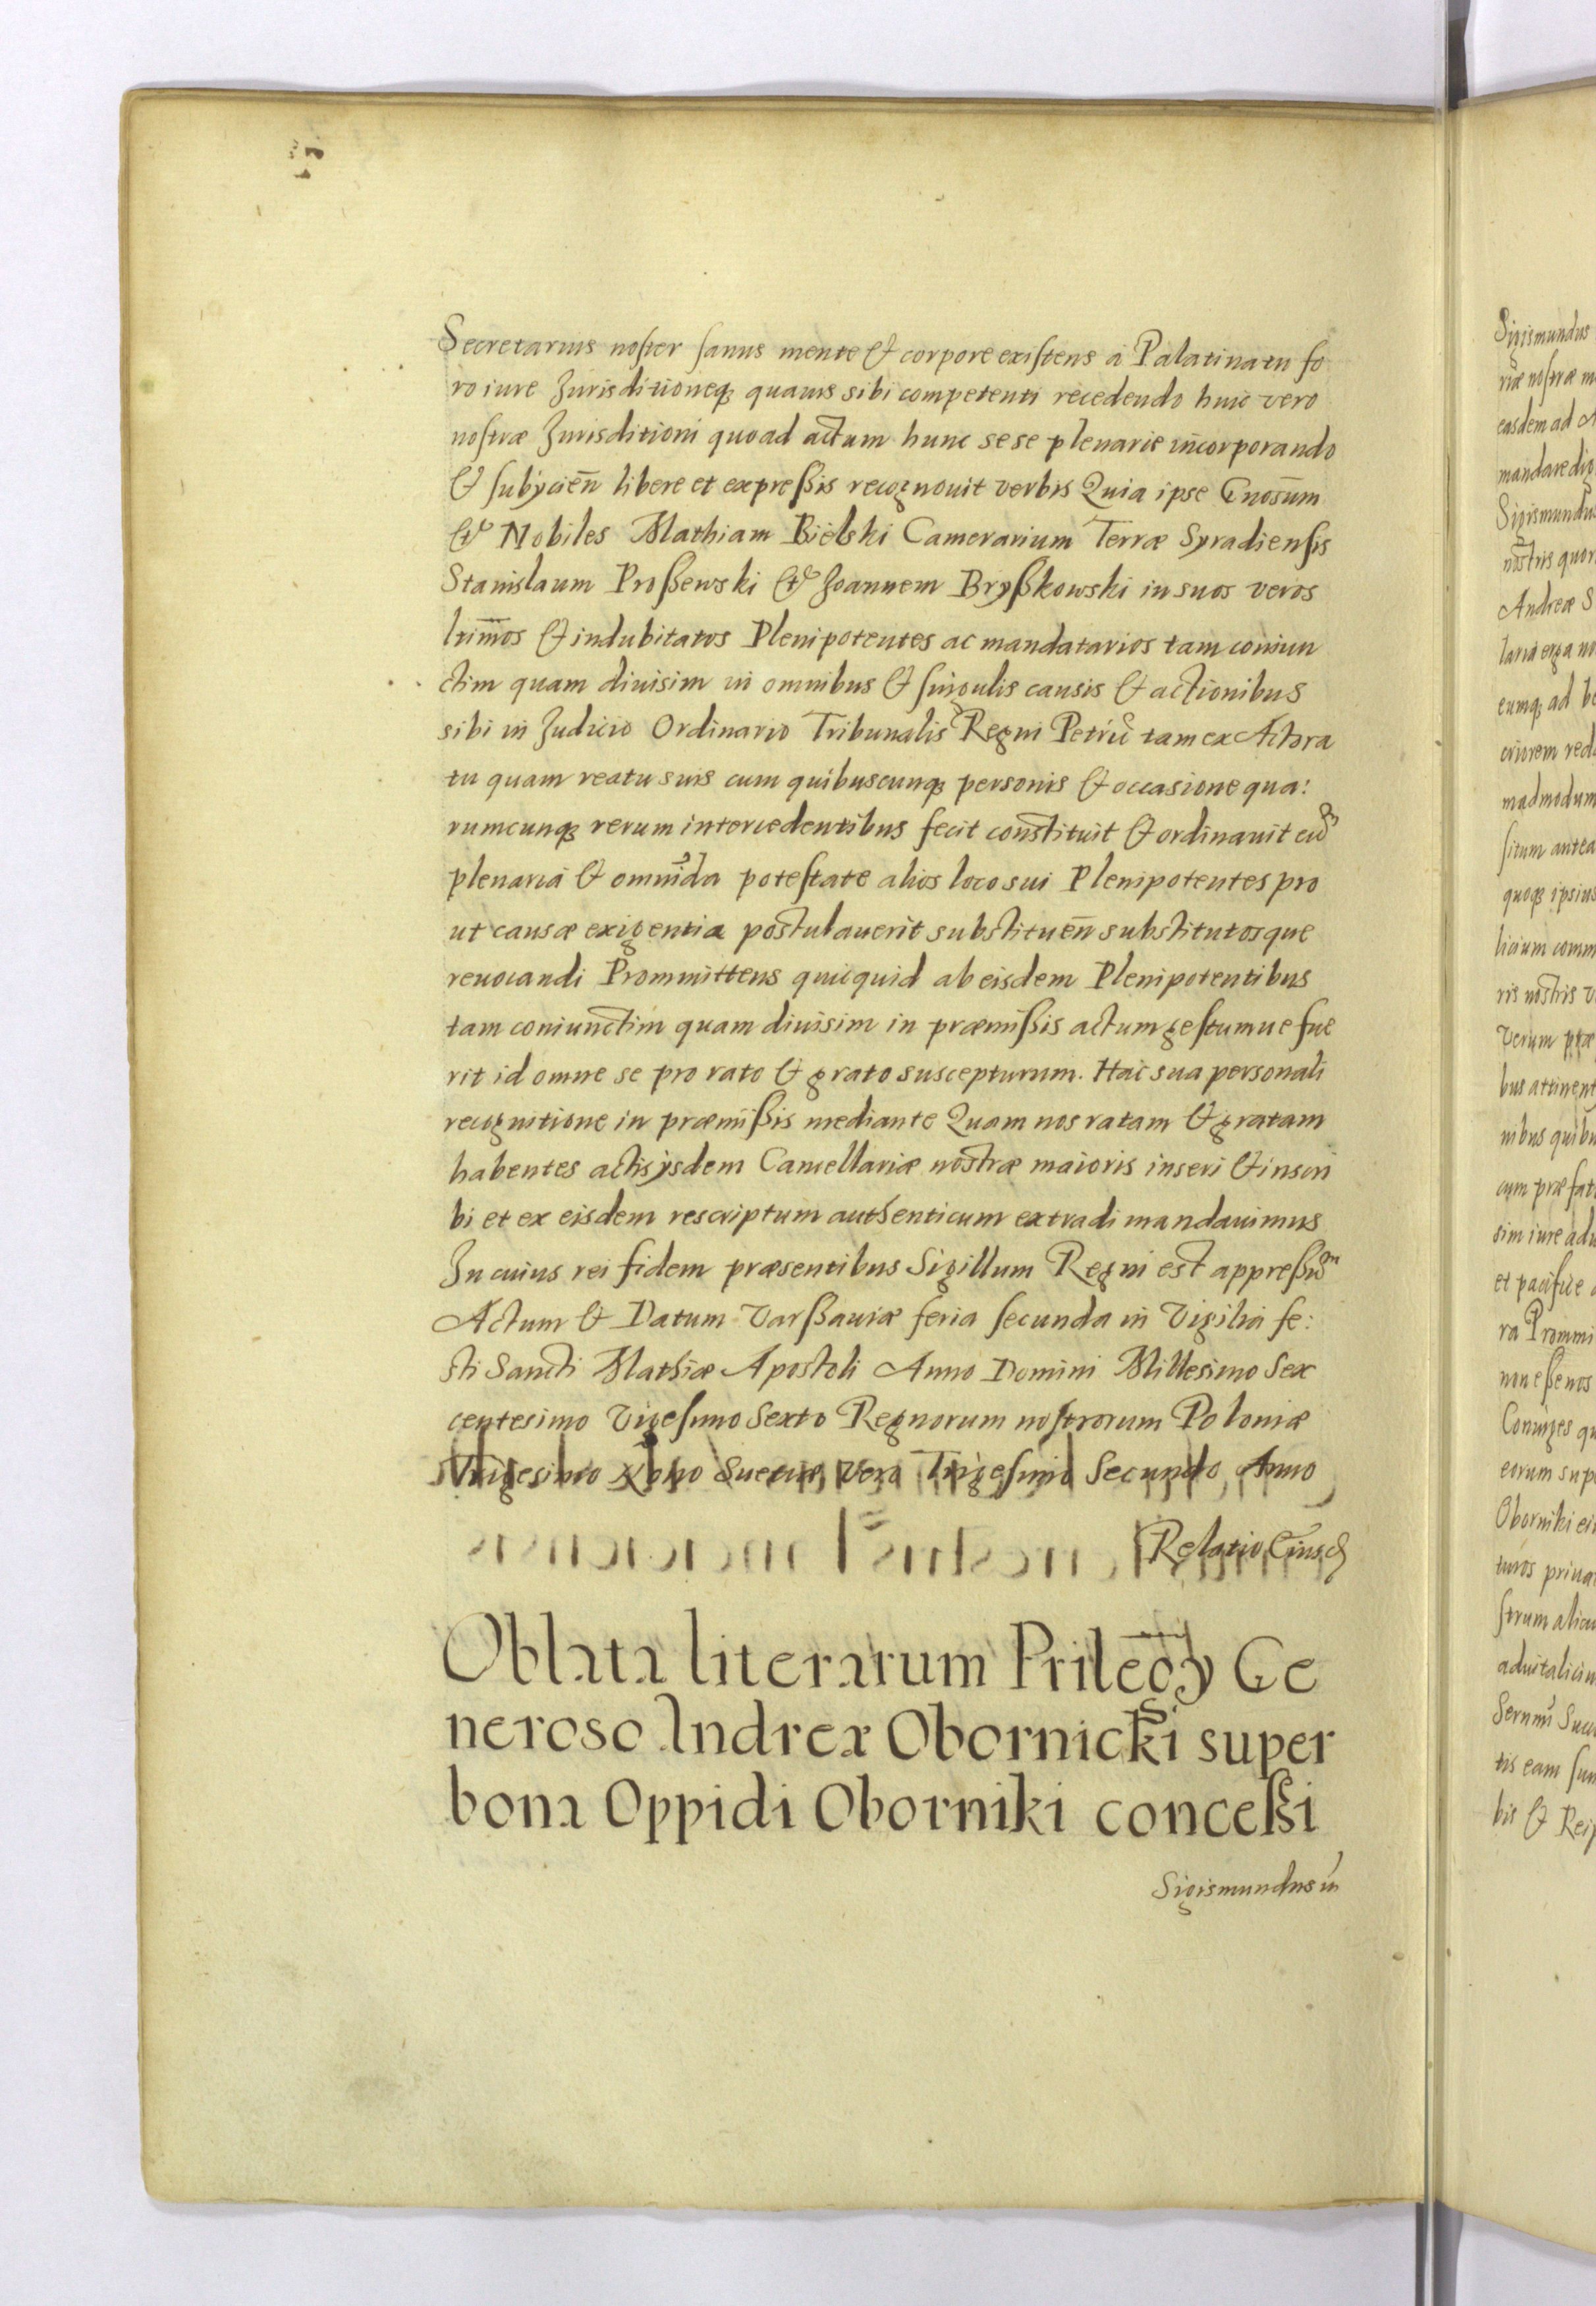 Secretarius noster sanus mente & corpore existens à Palatinatu fo
ro iure Jurisditioneq; quauis sibi competenti recedendo huic vero
nostræ Jurisditioni quoad actum hunc sese plenarie incorporando
& subÿcien̄ libere et expreßis recognouit verbis Quia ipse Gnosum̄
& Nobiles Mathiam Bielski Camerarium Terræ Syradiensis
Stanislaum Proßewski & Joannem Bryßkowski in suos veros
ltim̄os & indubitatos Plenipotentes ac mandatarios tam coniun
ctim quam diuisim in omnibus & singulis causis & actionibus
sibi in Judicio Ordinario Tribunalis Regni Petric̄ tam ex Actora
tu quam reatu suis cum quibuscunq; personis & occasione qua:
rumcunq; rerum intercedentibus fecit constituit & ordinauit cū
plenaria & omnīda potestate alios loco sui Plenipotentes pro
ut causæ exigentia postulauerit substituen̄ substitutosque
reuocandi Prommittens quicquid ab eisdem Plenipotentibus
tam coniunctim quam diuisim in præmißis actum gestumue fue
rit id omne se pro rato & grato suscepturum. Hac sua personali
recognitione in præmißis mediante Quam nos ratam & gratam
habentes actis ÿsdem Cancellariæ nostræ maioris inseri & inscri
bi et ex eisdem rescriptum authenticum extradi mandauimus
In cuius rei fidem præsentibus Sigillum Regni est appreßū
Actum & Datum Varßauiæ feria secunda in Vigilia fe:
sti Sancti Mathiæ Apostoli Anno Domini Millesimo Sex
centesimo Vigesimo Sexto Regnorum nostrorum Poloniæ
Trigesimo Nono Sueciæ vero Trigesimo Secundo Anno
Relatio Eiusd
Oblata literarum Prileḡy Ge
neroso Andreæ Obornicki super
bona Oppidi Oborniki conceßi
Sigismundus iii
Sigismundus
riæ nostræ
easdem ad
Sigismundus
Andreæ S
eumq; ad
madmodum
situm antea
quoq; ipsius
ris nostris
Verum præ
nibus quibu
cum præfat
sim iure adu
et pacifice
ra Prommi
Coniuges qu
eorum sup
Oborniki ei
turos priua
strum aliqu
aduitaliciu
tis eam
bis & Reip